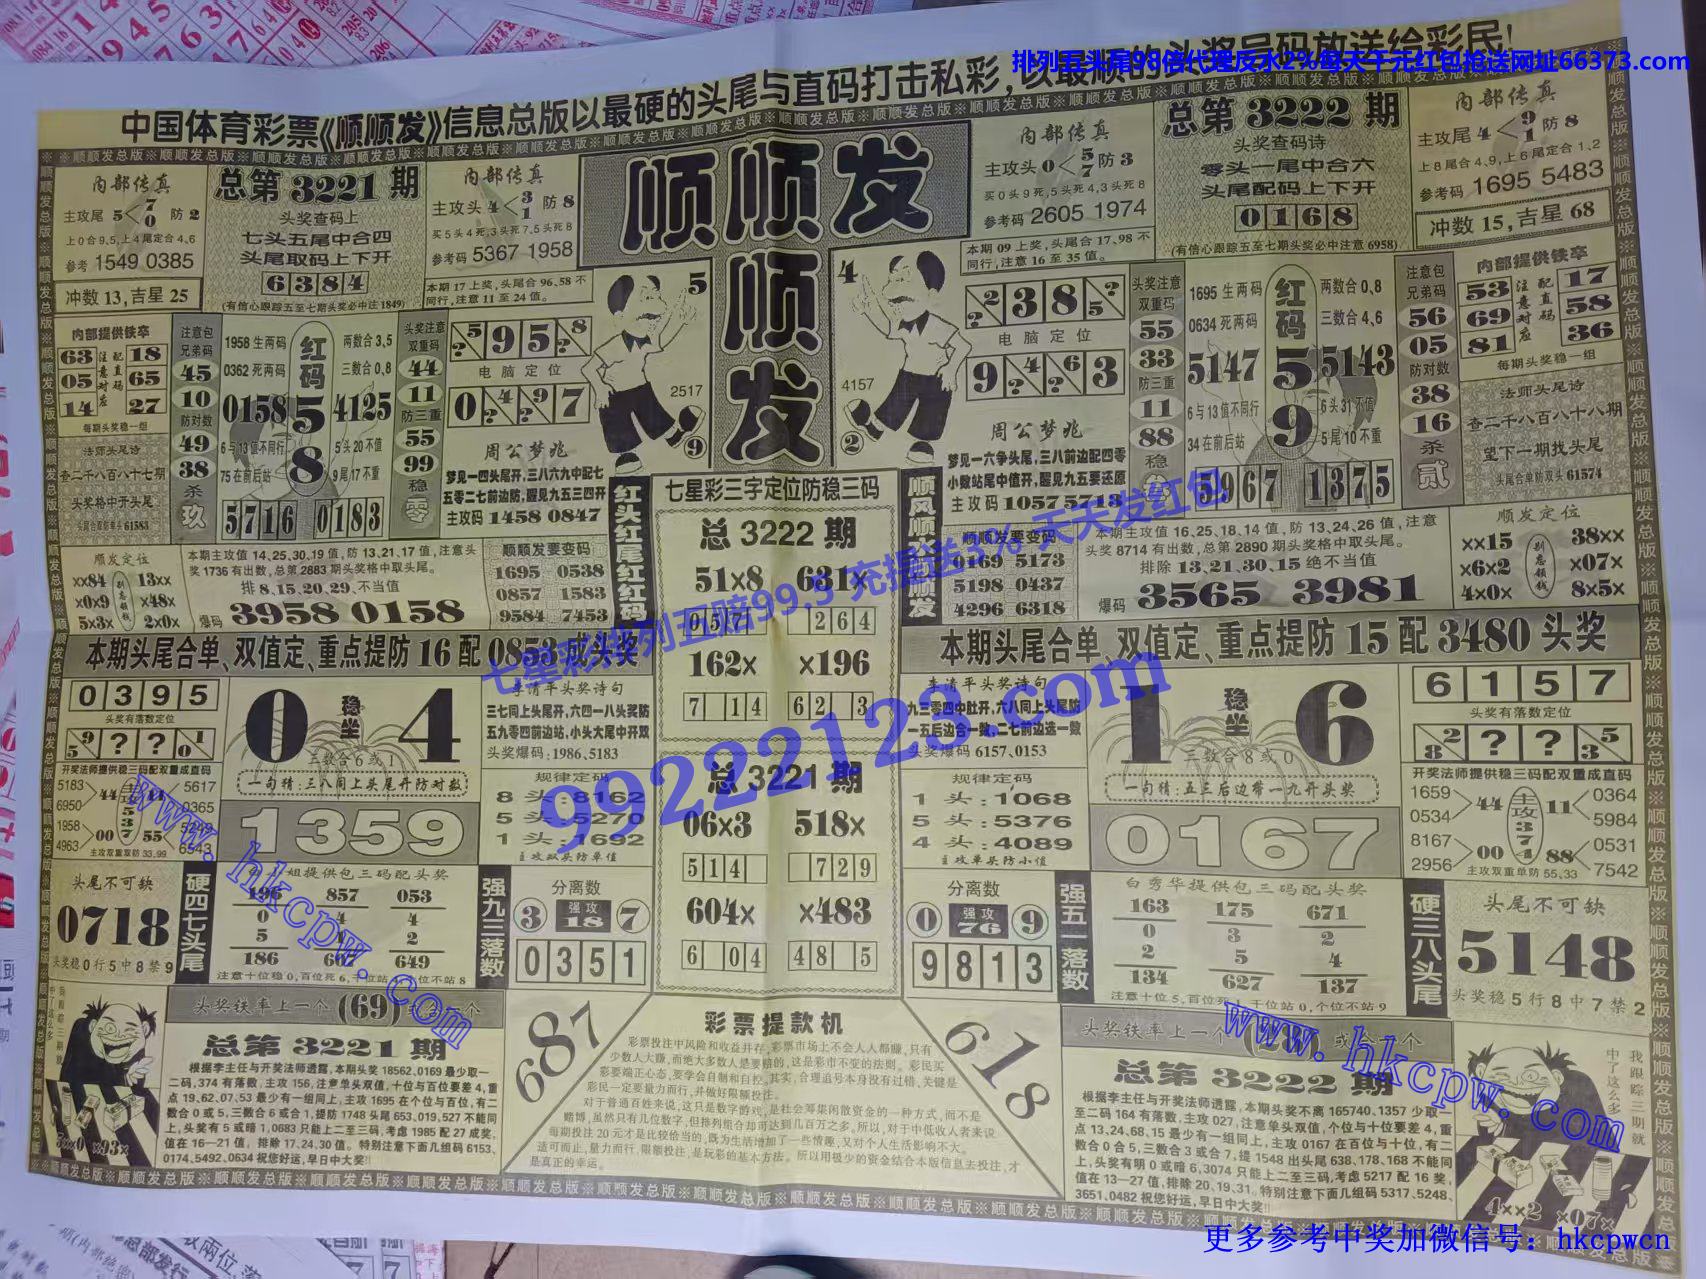 排列五头尾98倍代理反水2%每天千元红包抢送网址66373.com
中国体育彩票《顺顺发》信息总版以最硬的头尾与直码打击私彩，以最顺的头奖号码放送给彩民！
顺顺发
顺
发
内部传真
主攻尾 5<7 0 防 2
上0合9,5,上4尾定合4,6
参考 1549 0385
冲数 13,吉星 25
总第 3221 期
头奖查码上
七头五尾中合四
头尾取码上下开
6 3 8 4
(有信心跟踪五至七期头奖必中注 1849)
内部传真
主攻头 4<3 1 防 8
买5头4死,3头死7,5头死8
参考码 5367 1958
本期 17 上奖,头尾合 96,58 不
同行,注意 11 至 24 值。
内部传真
主攻头 0<5 7 防 3
买0头9死,5头死4,3头死8
参考码 2605 1974
本期 09 上奖,头尾合 17,98 不
同行,注意 16 至 35 值。
总第 3222 期
头奖查码诗
零头一尾中合六
头尾配码上下开
0 1 6 8
(有信心跟踪五至七期头奖必中注意 6958)
内部传真
主攻尾 4<9 1 防 8
上8尾合4,9,上6尾定合1,2
参考码 1695 5483
冲数 15,吉星 68
内部提供铁卒
63 注 配 18
05 意 直 65
14 应 27
每期头奖稳一组
法师头尾诗
查二千八百八十七期
头奖格中开头尾
头尾合单防单头 61583
注意包
兄弟码
45
10
防对数
49
38
杀
玖
1958 生两码
0362 死两码
红码
两数合 3,5
三数合 0,8
0158 5 4125
6 与 13 值不同行
75 在前后站
8
5 头 20 不值
9 尾 17 不重
5716 0183
头奖注意
双重码
44
11
防三重
55
99
稳
零
5 ? 9 5 8 ?
电脑定位
0 ? 4 9 ? 7
周公梦兆
梦见一四头尾开,三八六九中配七
五零二七前边防,醒见九五三四开
主攻码 1458 0847
5
2517
9
4
4157
2
? 2 3 8 5 ?
电脑定位
9 ? 4 6 ? 3
周公梦兆
梦见一六争头尾,三八前边配四零
小数站尾中值开,醒见九五要还原
主攻码 1057 5713
头奖注意
双重码
55
33
防三重
11
88
稳
1695 生两码
0634 死两码
红码
两数合 0,8
三数合 4,6
5147 5 5143
6 与 13 值不同行
34 在前后站
9
6 头 31 不值
5 尾 10 不重
5967 1375
注意包
兄弟码
56
05
防对数
38
16
杀
贰
内部提供铁卒
53 注 配 17
69 意 直 58
81 应 36
每期头奖稳一组
法师头尾诗
查二千八百八十八期
望下一期找头尾
头尾合单防双头 61574
顺发定位
xx84 13xx
x0x9 x48x
5x3x 2x0x
本期主攻值 14,25,30,19 值,防 13,21,17 值,注意头
奖 1736 有出数,总第 2883 期头奖格中取头尾。
排 8,15,20,29,不当值
爆码 3958 0158
顺顺发要变码
1695 0538
0857 1583
9584 7453
红头红尾红红码
七星彩三字定位防稳三码
总 3222 期
51x8 631x
0 5 7 2 6 4
162x x196
7 1 4 6 2 3
总 3221 期
06x3 518x
5 1 4 7 2 9
604x x483
6 0 4 4 8 5
顺风顺水顺顺发
顺顺发要变码
0169 5173
5198 0437
4296 6318
本期主攻值 16,25,18,14 值,防 13,24,26 值,注意
头奖 8714 有出数,总第 2890 期头奖格中取头尾。
排除 13,21,30,15 绝不当值
爆码 3565 3981
顺发定位
xx15 38xx
x6x2 x07x
4x0x 8x5x
本期头尾合单、双值定、重点提防 16 配 0853 成头奖
本期头尾合单、双值定、重点提防 15 配 3480 头奖
0 3 9 5
头奖有落数定位
5 9 ? ? 0 1
0 稳坐 4
三数合 6 或 1
一句精:三八同上头尾开防对数
李清平头奖诗句
三七同上头尾开,六四一八头奖防
五九零四前边站,小头大尾中开双
头奖爆码:1986,5183
开奖法师提供稳三码配双重成直码
5183 44 主攻 11 5617
6950 0365
1958 537 5249
4963 00 55 6543
主攻双重双防 33,99
1359
规律定码
8 头：8162
5 头：5270
1 头：1692
主攻双头防单值
头尾不可缺
0718
头奖稳 0 行 5 中 8 禁 9
硬四七头尾
姐提供包三码配头奖
196 857 053
0 4 4
5 2
186 649
强九三落数
分离数
3 强攻 18 7
0 3 5 1
李清平头奖诗句
九三零四中肚开,六八同上头尾防
一五后边合一数,二七前边选一数
头奖爆码 6157,0153
规律定码
1 头：1068
5 头：5376
4 头：4089
主攻单头防小值
1 稳坐 6
三数合 8 或 0
一句精:五三后边带一九开头奖
0167
6 1 5 7
头奖有落数定位
8 2 ? ? 3 5
开奖法师提供稳三码配双重成直码
1659 44 主攻 11 0364
0534 5984
8167 374 0531
2956 00 88 7542
主攻双重单防 55,33
分离数
0 强攻 76 9
9 8 1 3
强五一落数
白秀华提供包三码配头奖
163 175 671
0 3 2
2 5 4
134 627 137
注意十位 5,百位死 ,千位站 0,个位不站 9
硬三八头尾
头尾不可缺
5148
头奖稳 5 行 8 中 7 禁 2
头奖铁率上一个 (69)
总第 3221 期
根据李主任与开奖法师透露,本期头奖 18562,0169 最少取一
二码,374 有落数,主攻 156,注意单头双值,十位与百位要差 4,重
点 19,62,07,53 最少有一组同上,主攻 1695 在个位与百位,有二
数合 0 或 5,三数合 6 或合 1,提防 1748 头尾 653,019,527 不能同
上,头奖有 5 或暗 1,0683 只能上二至三码,考虑 1985 配 27 成奖,
值在 16—21 值,排除 17,24,30 值。特别注意下面几组码 6153,
0174,5492,0634 祝您好运,早日中大奖!!
5xx0 x93x
687
彩票提款机
彩票投注中风险和收益并存,彩票市场上不会人人都赚,只有
少数人大赚,而绝大多数人是要赔的,这是彩市不变的法则。彩民买
彩要端正心态,要学会自制和自控,其实,合理追号本身没有过错,关键是
彩民一定要量力而行,并做好限额投注。
对于普通百姓来说,这只是数字游戏,是社会筹集闲散资金的一种方式,而不是
赌博,虽然只有几位数字,但排列组合却可达到几百万之多,所以,对于中低收入者来说
每期投注 20 元才是比较恰当的,既为生活增加了一些情趣,又对个人生活影响不大。
适可而止,量力而行,限额投注,是玩彩的基本方法。所以用极少的资金结合本版信息去投注,才
是真正的幸运。
618
头奖铁率上一个
总第 3222 期
根据李主任与开奖法师透露,本期头奖不离 165740,1357 少取一
至二码 164 有落数,主攻 027,注意单头双值,个位与十位要差 4,重
点 13,24,68,15 最少有一组同上,主攻 0167 在百位与十位,有二
数合 0 合 5,三数合 3 或合 7,提 1548 出头尾 638,178,168 不能同
上,头奖有明 0 或暗 6,3074 只能上二至三码,考虑 5217 配 16 奖,
值在 13—27 值,排除 20,19,31。特别注意下面几组码 5317,5248,
3651,0482 祝您好运,早日中大奖!!
我跟踪三期就
中了这么多
4xx2 x07x
七星彩排列五赔99.3 充提送3% 天天发红包
99222123.com
www.hkcpw.com
www.hkcpw.com
更多参考中奖加微信号：hkcpwcn